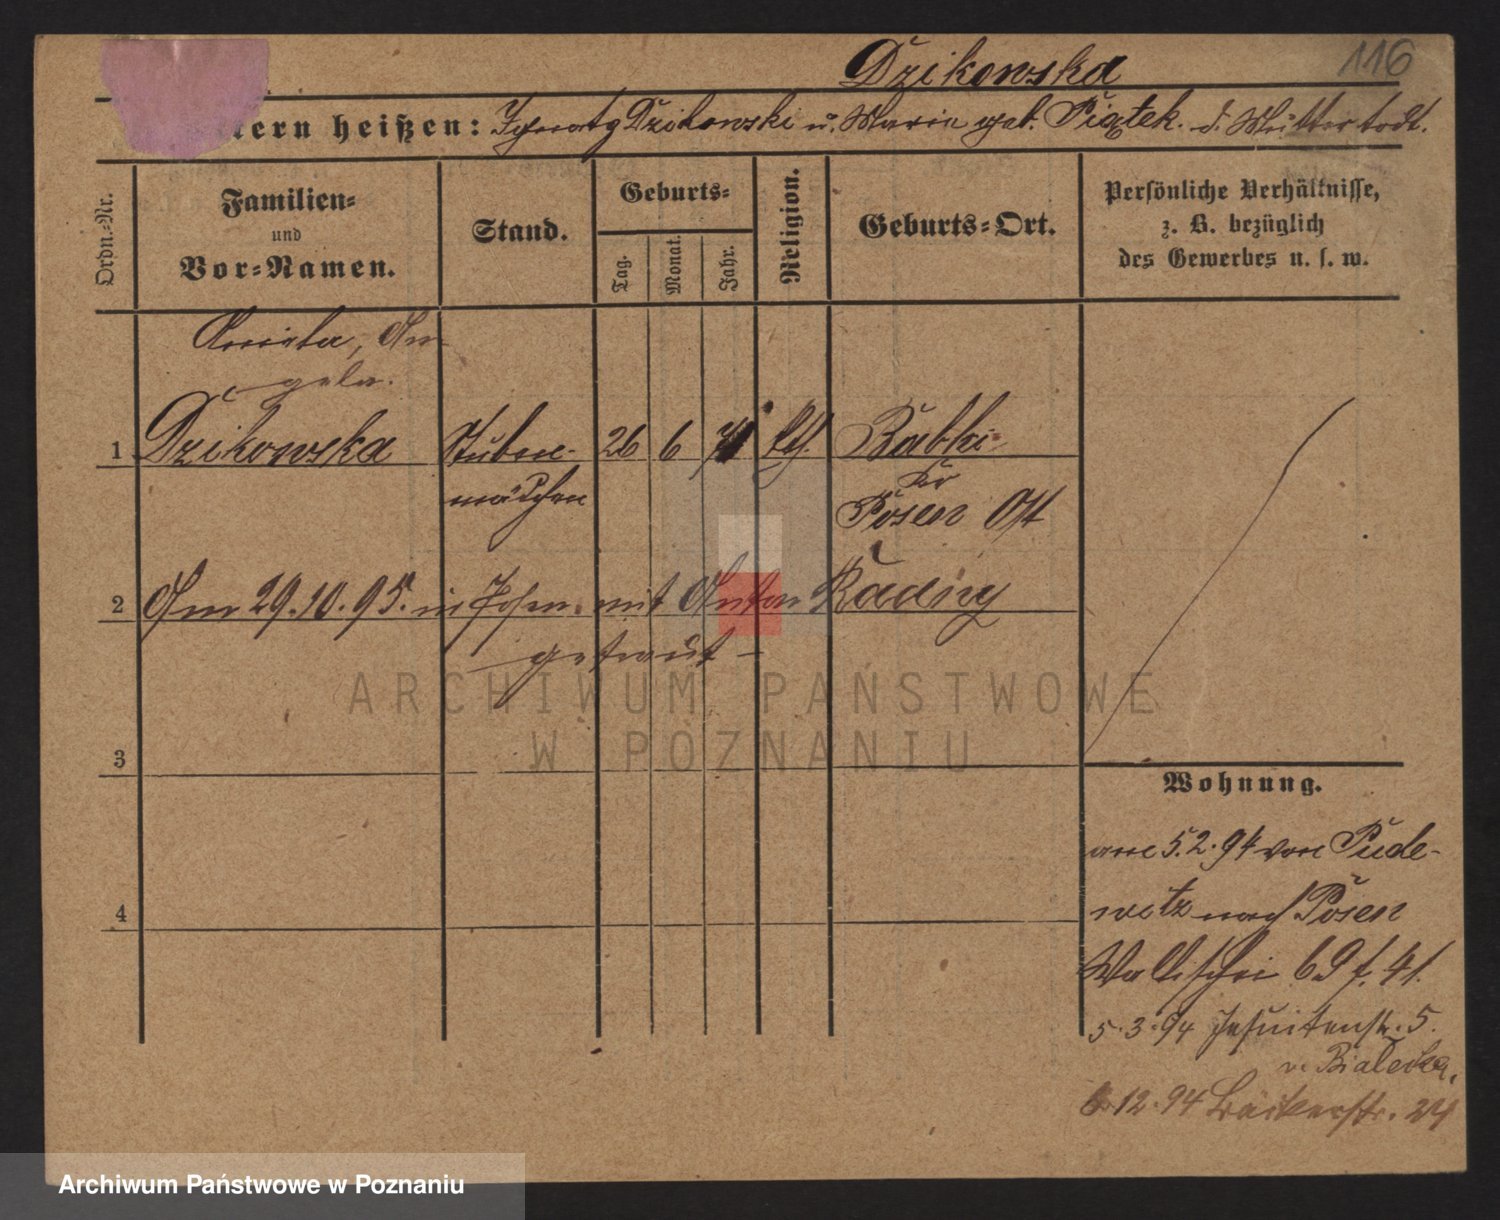 116
Dzikowska
tern heißen: Ignatz Dzikowski u. Marie geb. Piątek. d. Mutter todt.
Ordn.=Nr.
Familien=
und
Vor=Namen.
Stand.
Geburts=
Tag.
Monat.
Jahr.
Religion.
Geburts=Ort.
Persönliche Verhältnisse,
z. B. bezüglich
des Gewerbes u. s. w.
An-
gela.
1 Dzikowska Stuben- 26 6 71 kth. Babki
mädchen Kr
Posen Ost
2 Am 29.10.95. in Posen mit Anton Radny
getraut -
ARCHIWUM PAŃSTWOWE
W POZNANIU
3
Wohnung.
am 5.2.94 von Pude-
witz nach Posen
4
Wallischei 69 f. 41.
5.3.94 Jesuitenstr. 5.
b. Bialecka,
12.94 Bäckerstr. 24
Archiwum Państwowe w Poznaniu